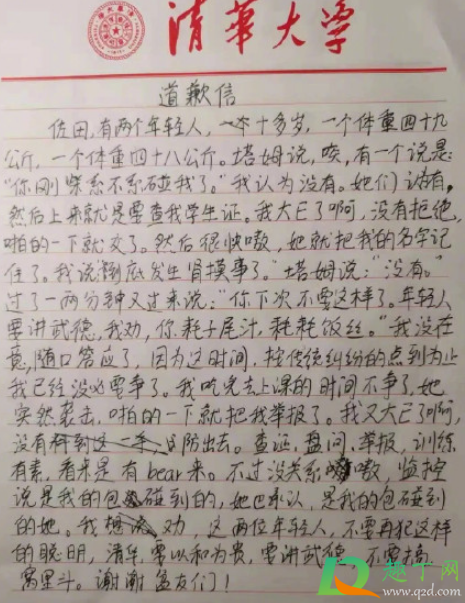 清華大学
道歉信
佐田,有两个年轻人,一个十多岁,一个体重四十九
公斤,一个体重四十八公斤。塔姆说,唉,有一个说是:
"你刚紫系不系碰我了。"我认为没有。她们认为有,
然后上来就是要查我学生证。我大E了啊,没有拒绝,
啪的一下就交了。然后很快嗷,她就把我的名字记
住了。我说到底发生肾摸事了。"塔姆说:"没有。"
过了一两分钟又过来说:"你下次不要这样了。年轻人
要讲武德,我劝,你耗子尾汁,耗耗饭丝。"我没在
意,随口答应了,因为这时间,按传统纠纷的点到为止
我已经没必要争了。我吃完去上课的时间不争了,她
突然袭击,啪的一下就把我举报了。我又大E了啊,
没有料到这一手,没防出去。查证,盘问,举报,训练
有素,看来是有bear来。不过没关系嗷,监控
说是我的包碰到的,她也承认,是我的包碰到
的她。我劝,这两位年轻人,不要再犯这样
的聪明,清华,要以和为贵,要讲武德,不要搞
窝里斗。谢谢盆友们!
趣丁网
www.qzd.com